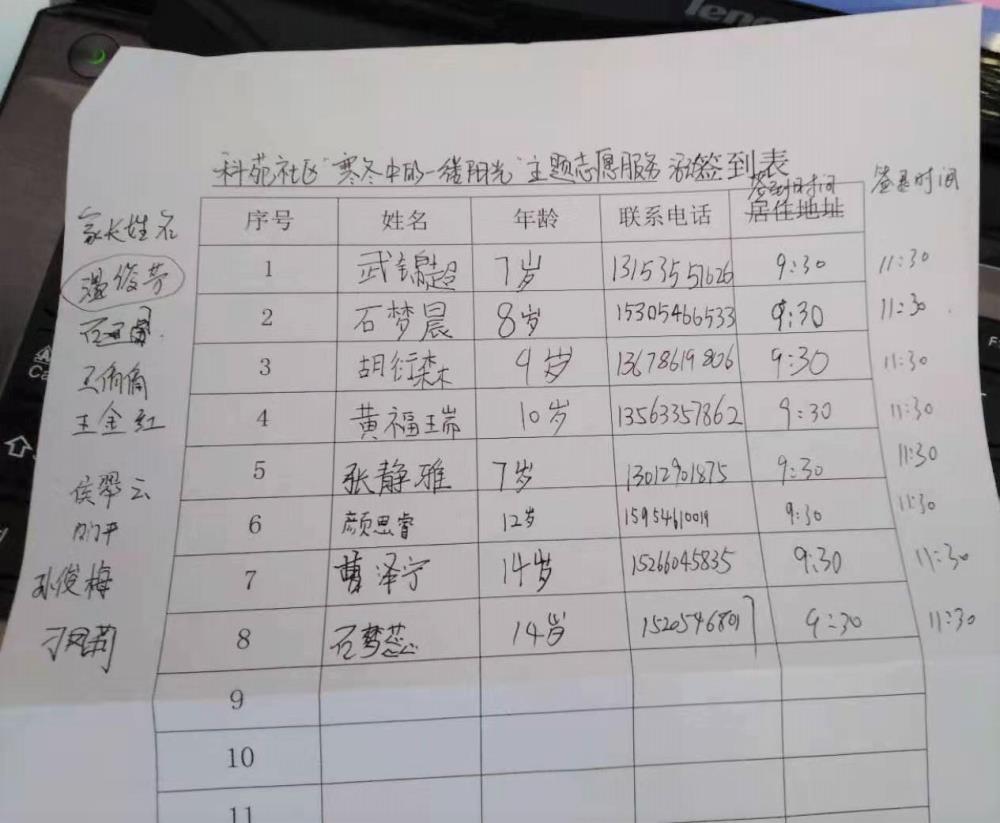 Leno
科苑社区"寒冬中的一缕阳光"主题志愿服务活动签到表
家长姓名 序号 姓名 年龄 联系电话 签到时间 居住地址 签退时间
温俊芳 1 武锦超 7岁 13153551626 9:30 11:30
2 石梦晨 8岁 15305466533 9:30 11:30
王俏俏 3 胡衍森 9岁 13678619806 9:30 11:30
王金红 4 黄福瑞 10岁 13563357862 9:30 11:30
侯翠云 5 张静雅 7岁 13012901875 9:30 11:30
6 颜思睿 12岁 15954610019 9:30 11:30
孙俊梅 7 曹泽宁 14岁 15266045835 9:30 11:30
8 石梦蕊 14岁 15205468017 9:30 11:30
9
10
11